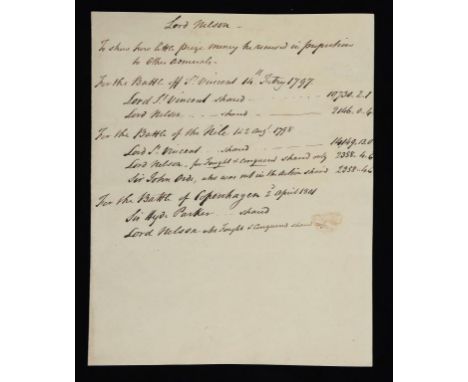 Lord Nelson -
To shew how little prize money he received in proportion
to other Admirals -
For the Battle off St Vincent 14th Febry 1797
Lord St Vincent shared 10730.2.1
Lord Nelson shared 2146.0.4
For the Battle of the Nile 1 & 2 Augt 1798
Lord St Vincent shared 14149.13.0
Lord Nelson, who fought & conquered shared only 2358.4.6
Sir John Orde, who was not in the action shared 2358.4.6
For the Battle of Copenhagen 2d April 1801
Sir Hyde Parker shared
Lord Nelson who fought & conquered shared